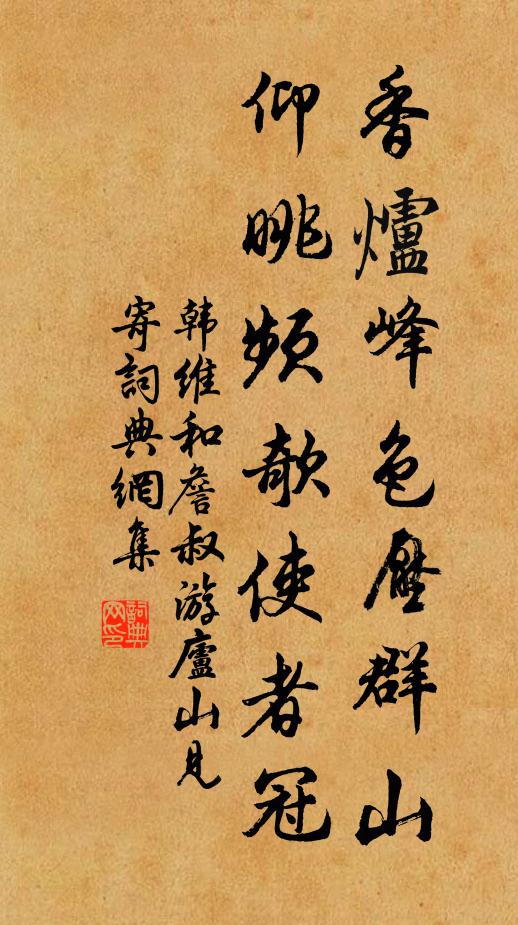 香爐峰色壓群山
仰眺頻欹使者冠
韩維和詹叔游廬山見
寄詞典網集
詞典网印